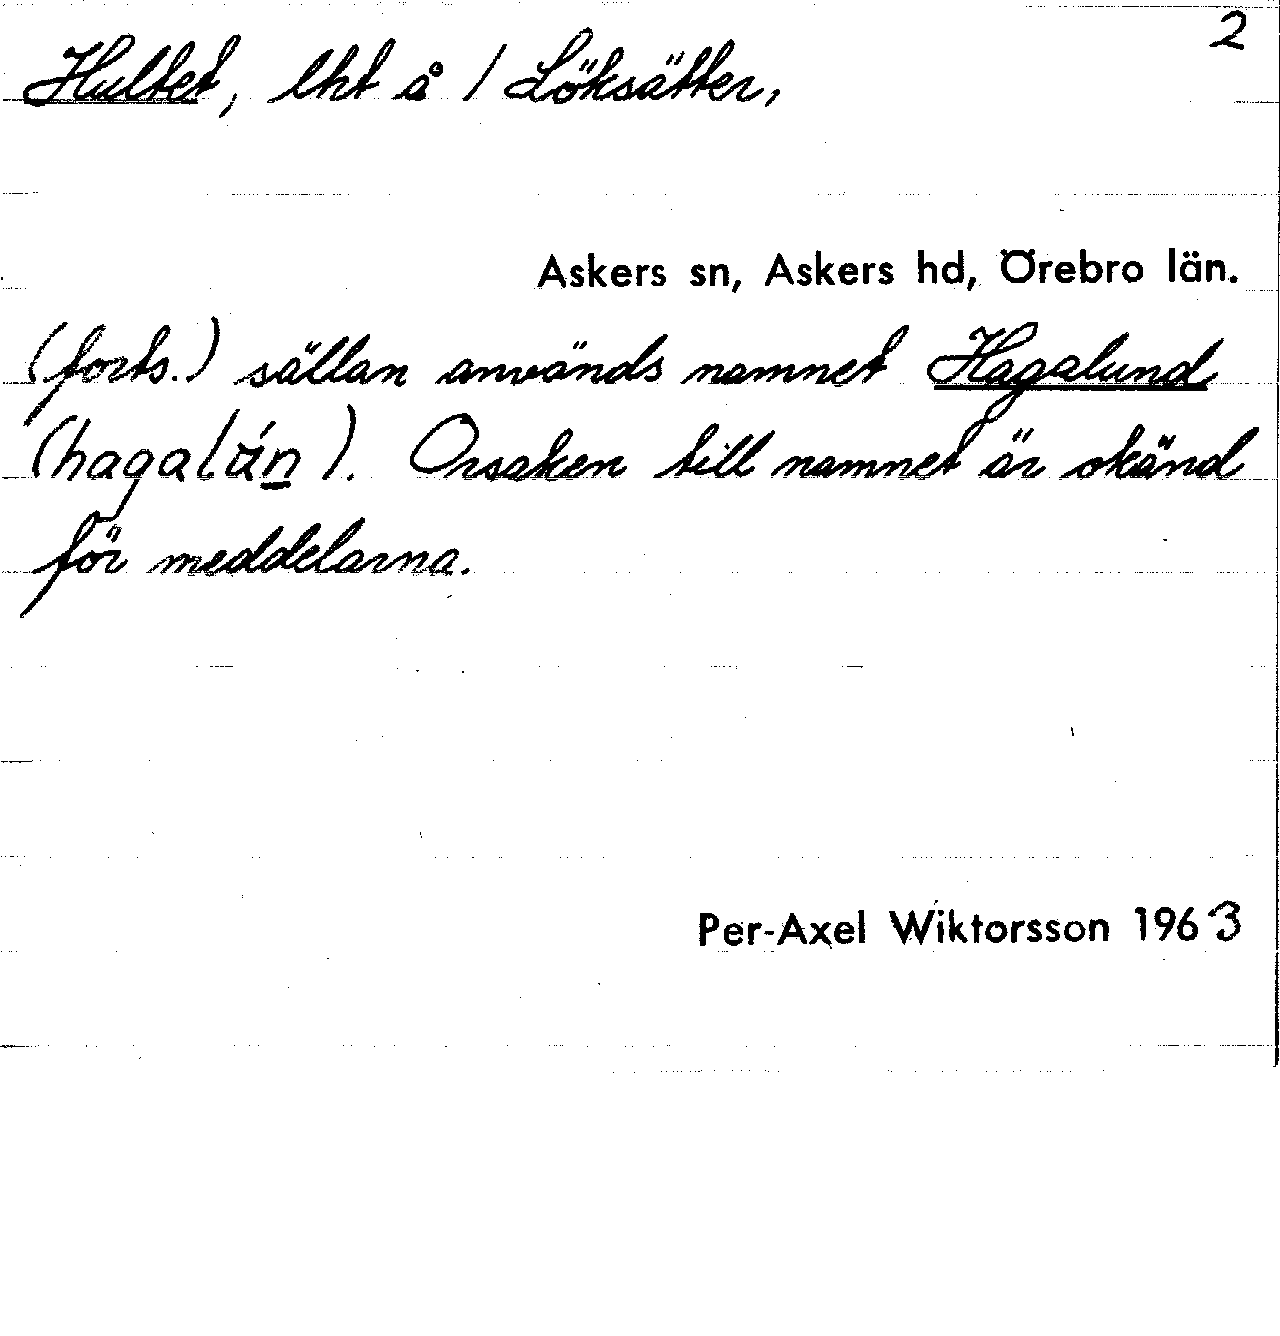 2
Hultet, lht å / Löksätter,
Askers sn, Askers hd, Örebro län.
(forts.) sällan används namnet Hagalund
( ). Orsaken till namnet är okänd
för meddelarna.
Per-Axel Wiktorsson 1963